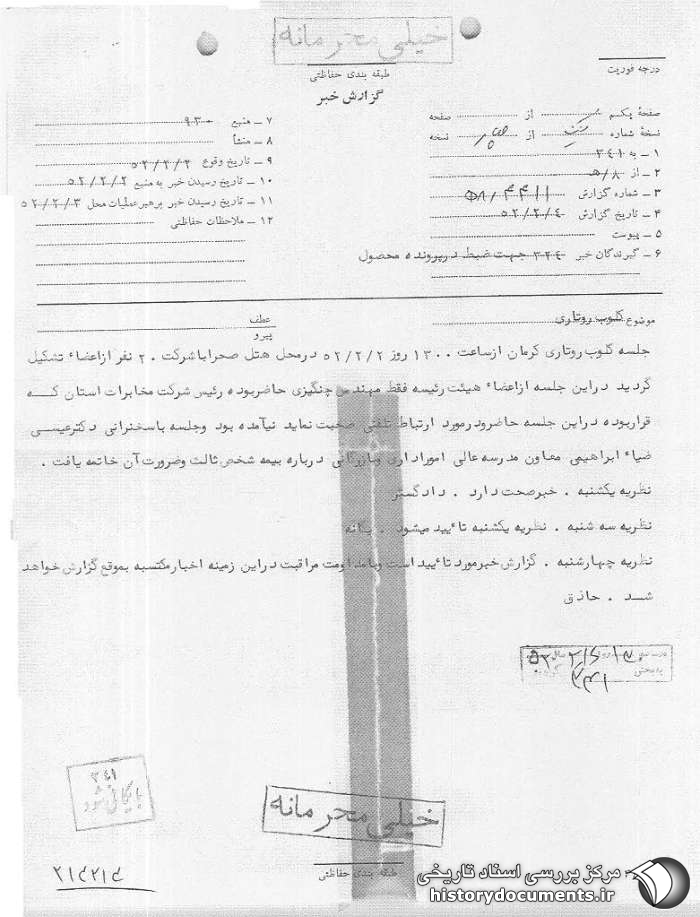 خیلی محرمانه
طبقه بندی حفاظتی
گزارش خبر
درجه فوریت
صفحهٔ یکم از صفحه
نسخهٔ شماره از نسخه
۱ ـ به ۳۴۱
۲ ـ از ۸/ ه‍
۳ ـ شماره گزارش ۴۴۱۱/ ه‍ ۸
۴ ـ تاریخ گزارش ۵۲/۲/۴
۵ ـ پیوست
۶ ـ گیرندگان خبر ۳۲۴ جهت ضبط درپرونده محصول
۷ ـ منبع ۹۳۰
۸ ـ منشأ
۹ ـ تاریخ وقوع ۵۲/۲/۲
۱۰ ـ تاریخ رسیدن خبر به منبع ۵۲/۲/۲
۱۱ ـ تاریخ رسیدن خبر برهبر عملیات محل ۵۲/۲/۳
۱۲ ـ ملاحظات حفاظتی
موضوع کلوب روتاری
عطف
پیرو
جلسه کلوب روتاری کرمان ازساعت ۱۳۰۰ روز ۵۲/۲/۲ درمحل هتل صحرا باشرکت ۲۰ نفر ازاعضاء تشکیل
گردید دراین جلسه ازاعضاء هیئت رئیسه فقط مهندس چنگیزی حاضربوده رئیس شرکت مخابرات استان کـه
قراربوده دراین جلسه حاضرودرمورد ارتباط تلفنی صحبت نماید نیآمده بود وجلسه باسخنرانی دکترعیسی
ضیاء ابراهیمی معاون مدرسه عالی اموراداری وبازرگانی درباره بیمه شخص ثالث وضرورت آن خاتمه یافت .
نظریه یکشنبه . خبرصحت دارد . دادگستر
نظریه سه شنبه . نظریه یکشنبه تائیید میشود .
نظریه چهارشنبه . گزارش خبرمورد تائیید است وبامداومت مراقبت دراین زمینه اخبارمکتسبه بموقع گزارش خواهد
شـد . حاذق
۳۴۱
بایگانی شود
خیلی محرمانه
طبقه بندی حفاظتی
مرکز بررسی اسناد تاریخی
historydocuments.ir